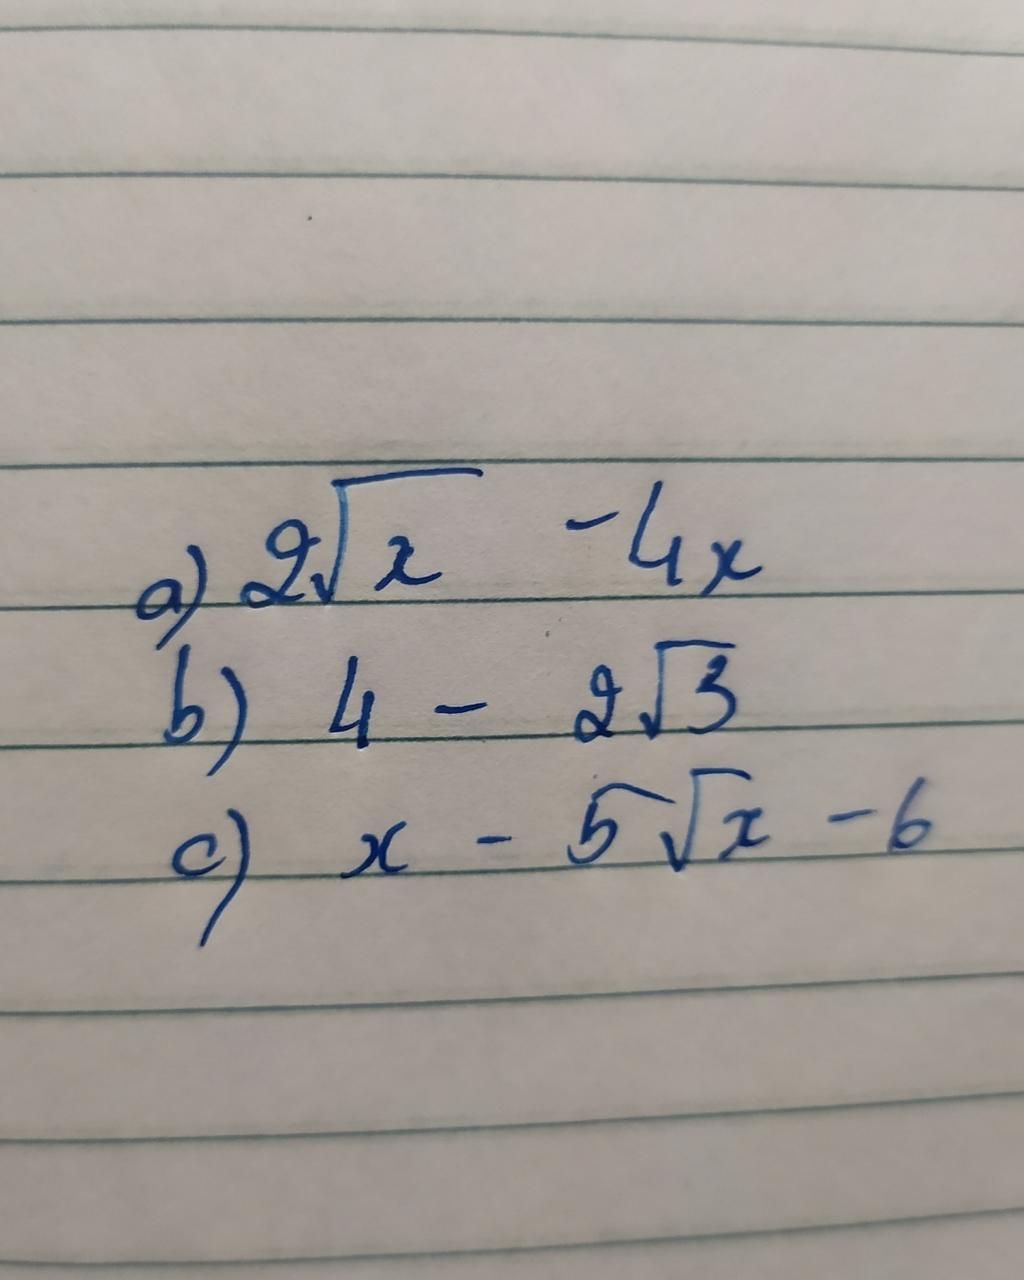 a) 2√x - 4x
b) 4 - 2√3
c) x - 5√x - 6